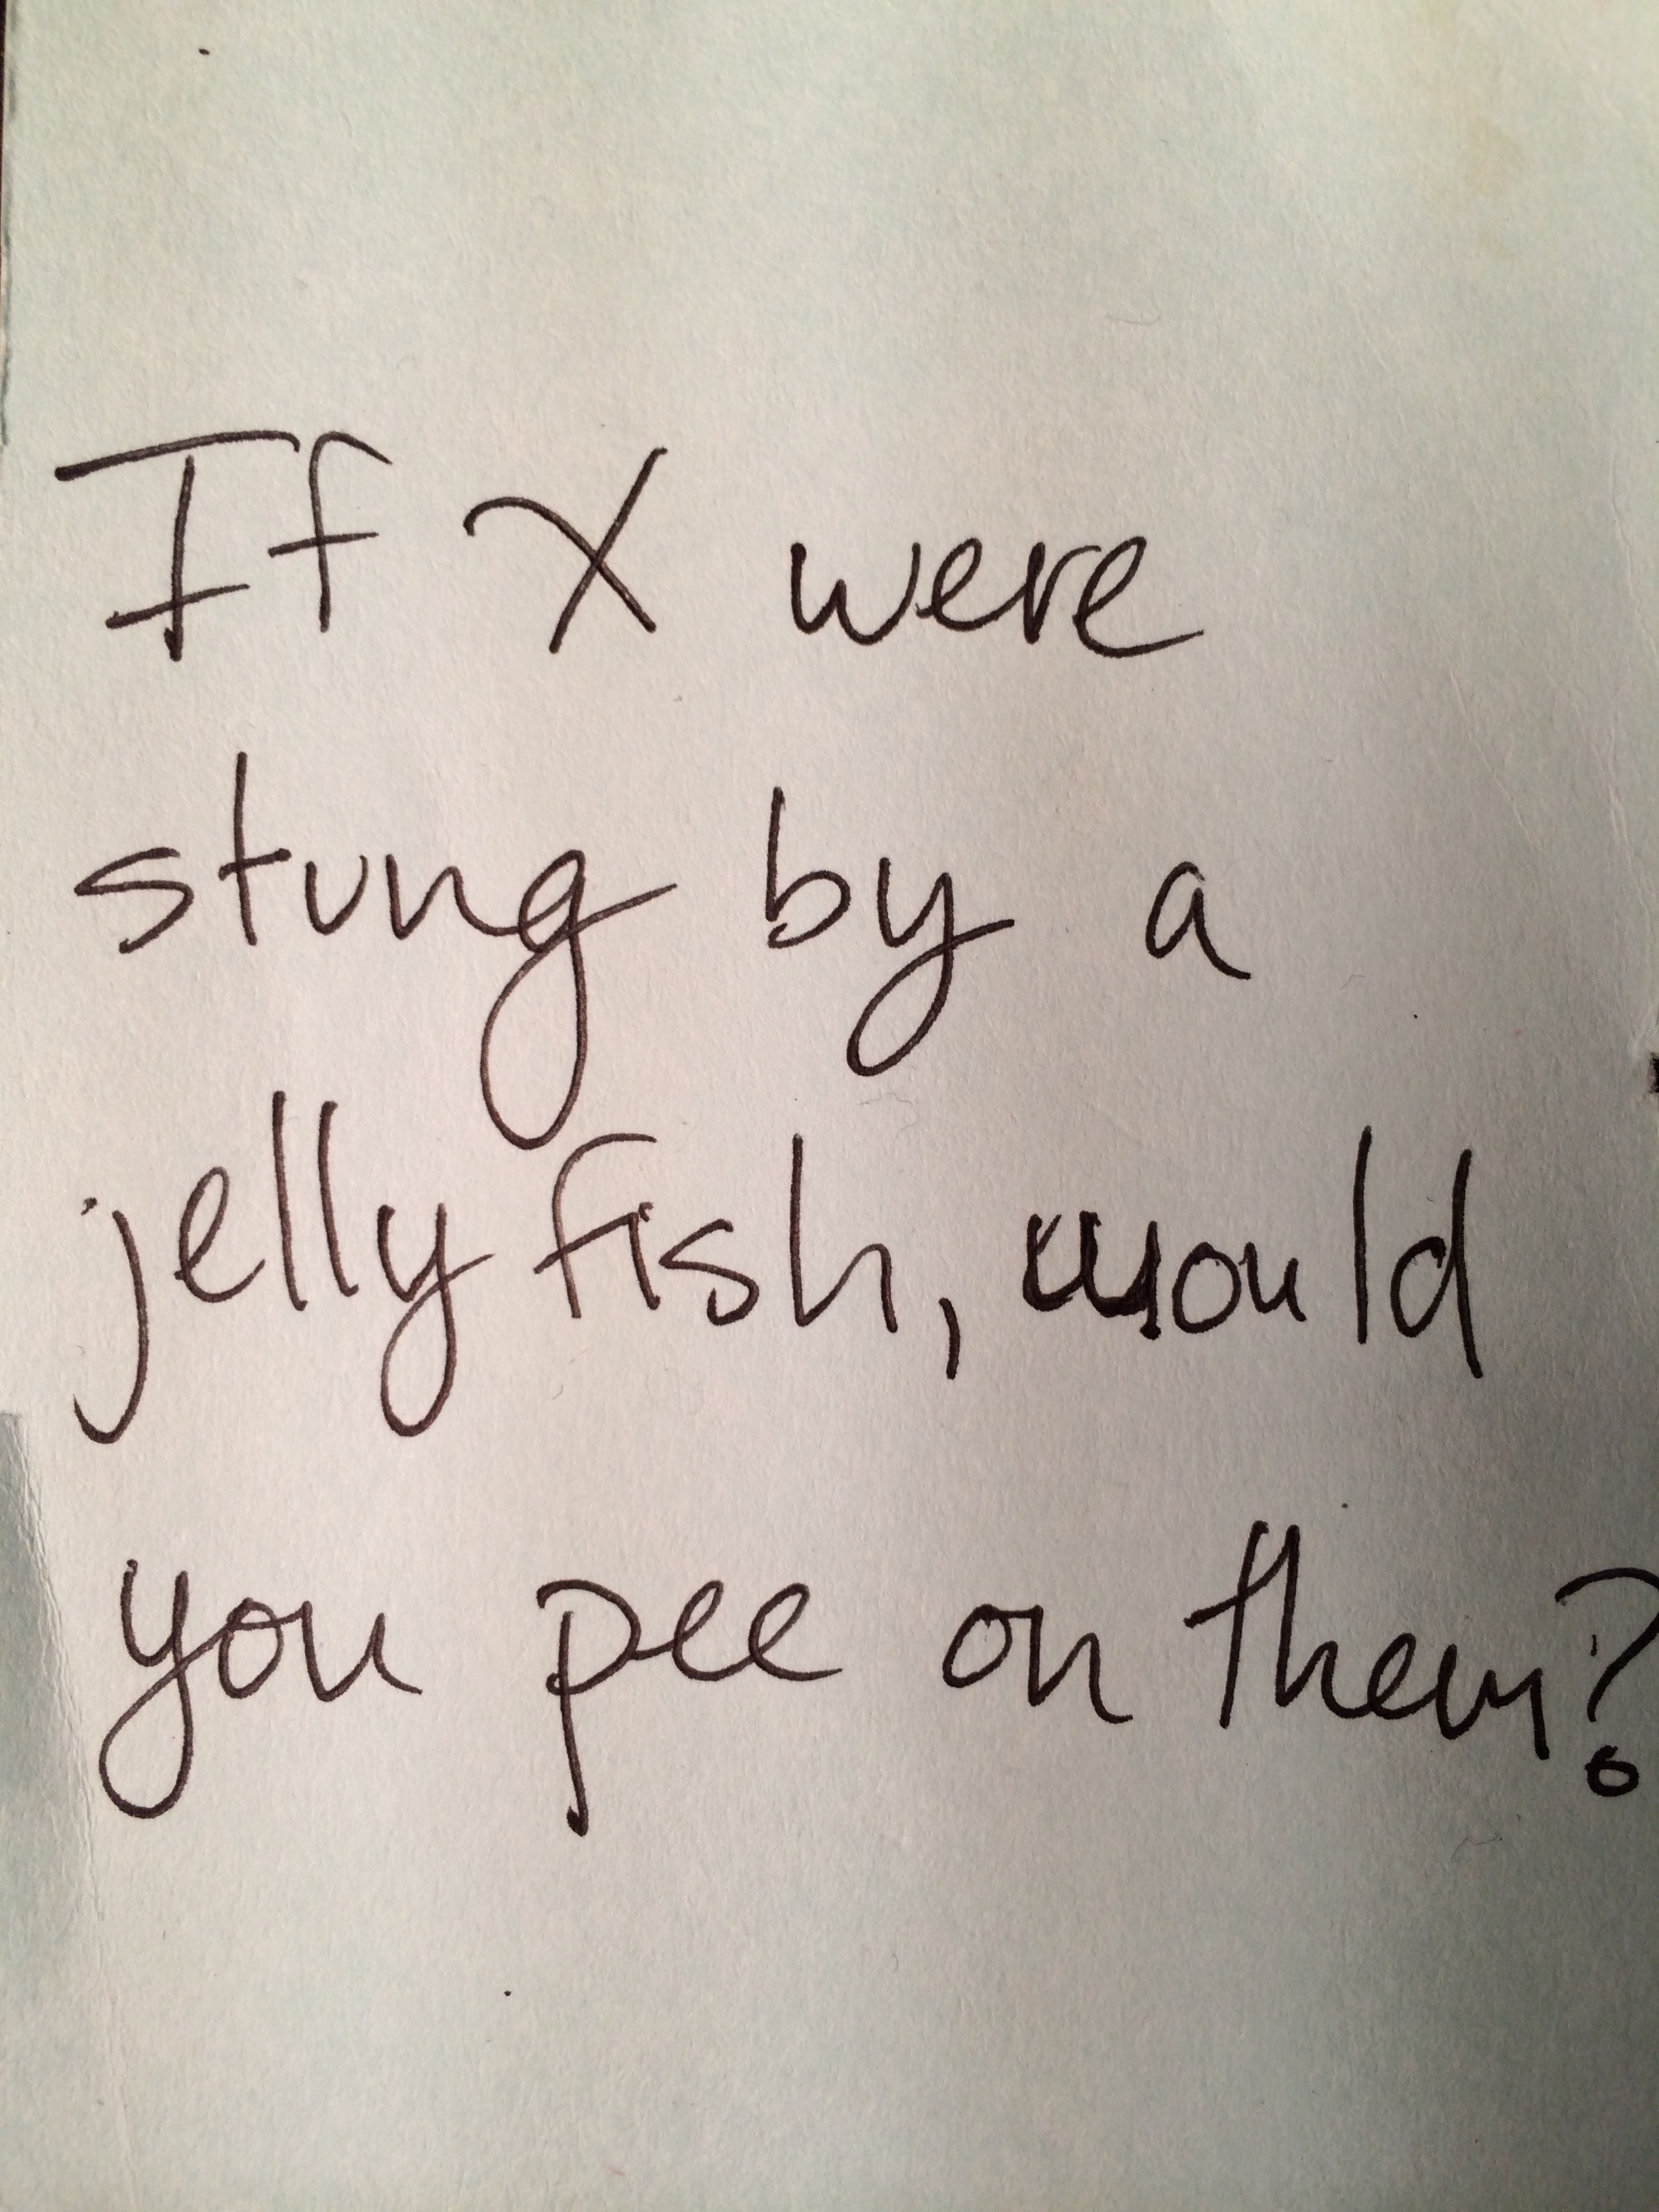 If X were
stung by a
jellyfish, would
you pee on them?